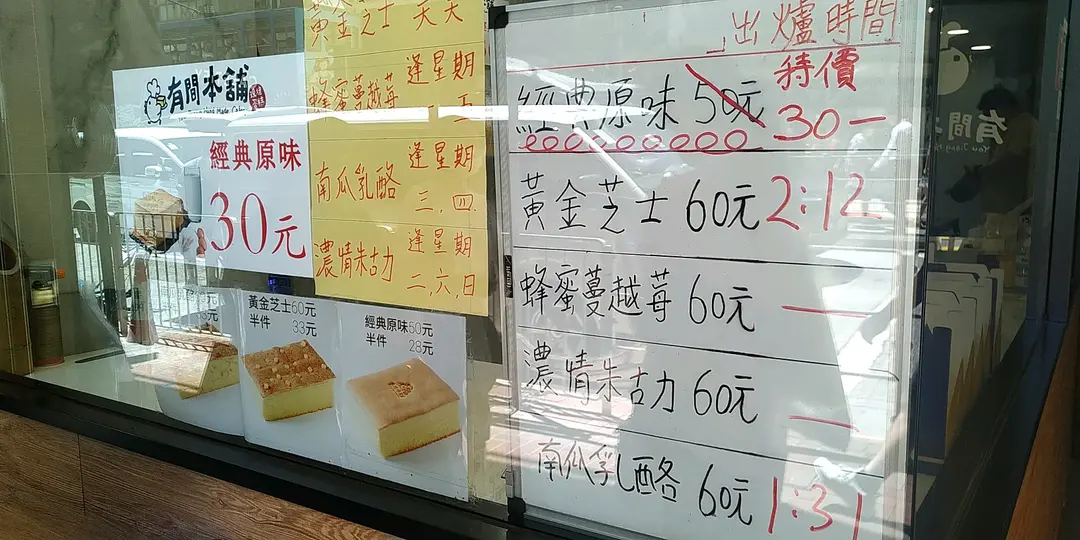 有間本舖
經典原味
30元
黃金芝士 天天
蜂蜜蔓越莓 逢星期
一、五
南瓜乳酪 逢星期
三、四
濃情朱古力 逢星期
二、六、日
黃金芝士60元
半件 33元
經典原味60元
半件 28元
出爐時間
經典原味 50元 特價
30-
黃金芝士 60元 2:12
蜂蜜蔓越莓 60元
濃情朱古力 60元
南瓜乳酪 60元 1:31
有間